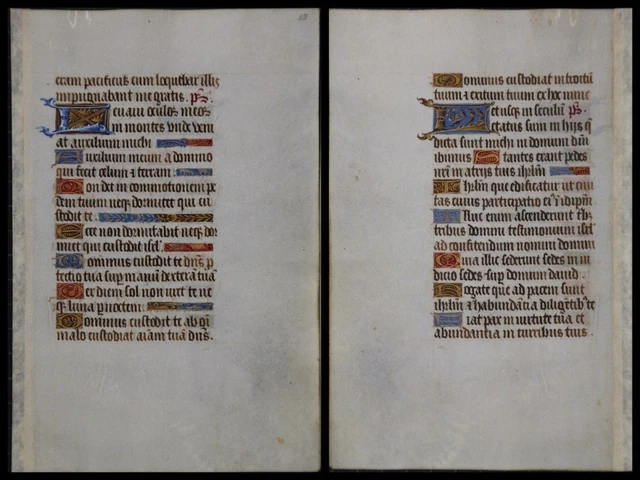 eram pacificus cum loquebar illis
impugnabant me gratis. ps.
Leuaui oculos meos
in montes vnde veni
at auxilium michi
Auxilium meum a domino
qui fecit celum ⁊ terram.
Non det in commotionem pe
dem tuum neqȝ dormitet qui cu
stodit te.
Ecce non dormitabit neqȝ dor
miet qui custodit isrl.
Dominus custodit te dns p
tectio tua sup manū dexterā tuā
Per diem sol non vret te ne
qȝ luna p noctem.
Dominus custodit te ab oī
malo custodiat aīam tuā dns.
Dominus custodiat introitū
tuum ⁊ exitum tuum ex hoc nunc
et usqȝ in seculū ps.
Letatus sum in hijs q̄
dicta sunt michi in domum dn̄i
ibimus Stantes erant pedes
nr̄i in atrijs tuis ihrlm̄
Ihrlm̄ que edificatur ut ciui
tas cuius participatio eiꝰ ī idipm̄
Illuc enim ascenderunt tribꝰ
tribus domini testimonium isrl
ad confitendum nomini domini
Quia illic sederunt sedes in iu
dicio sedes sup domum dauid.
Rogate que ad pacem sunt
ihrlm̄ ⁊ habundātia diligētibꝰ te
Fiat pax in uirtute tua et
abundantia in turribus tuis.